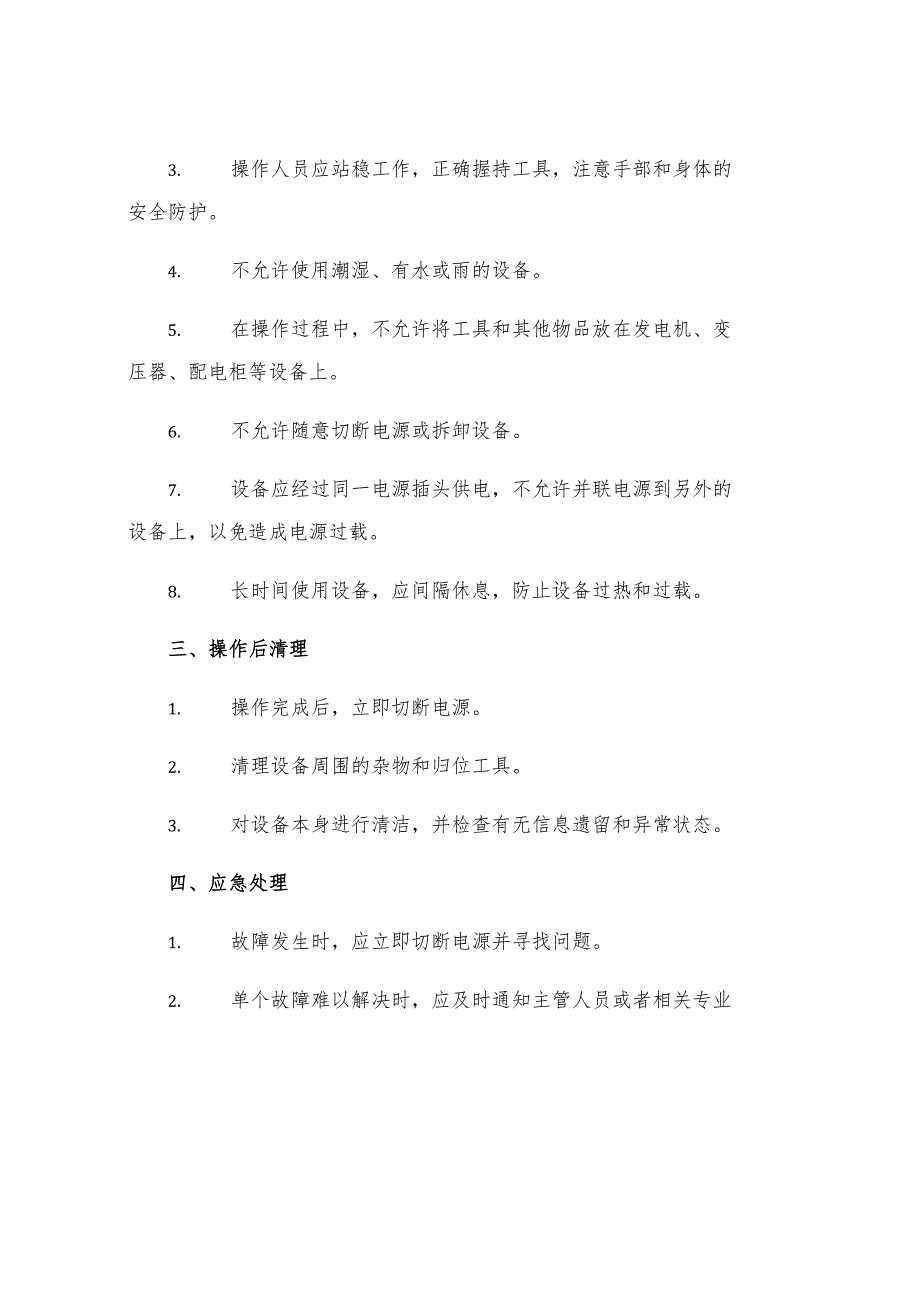 3. 操作人员应站稳工作，正确握持工具，注意手部和身体的
安全防护。
4. 不允许使用潮湿、有水或雨的设备。
5. 在操作过程中，不允许将工具和其他物品放在发电机、变
压器、配电柜等设备上。
6. 不允许随意切断电源或拆卸设备。
7. 设备应经过同一电源插头供电，不允许并联电源到另外的
设备上，以免造成电源过载。
8. 长时间使用设备，应间隔休息，防止设备过热和过载。
三、操作后清理
1. 操作完成后，立即切断电源。
2. 清理设备周围的杂物和归位工具。
3. 对设备本身进行清洁，并检查有无信息遗留和异常状态。
四、应急处理
1. 故障发生时，应立即切断电源并寻找问题。
2. 单个故障难以解决时，应及时通知主管人员或者相关专业